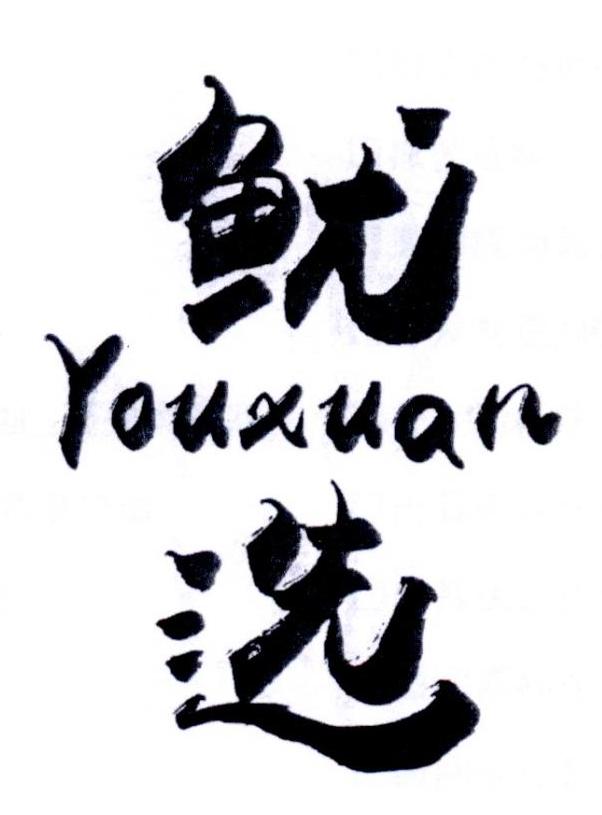 鱿
Youxuan
选